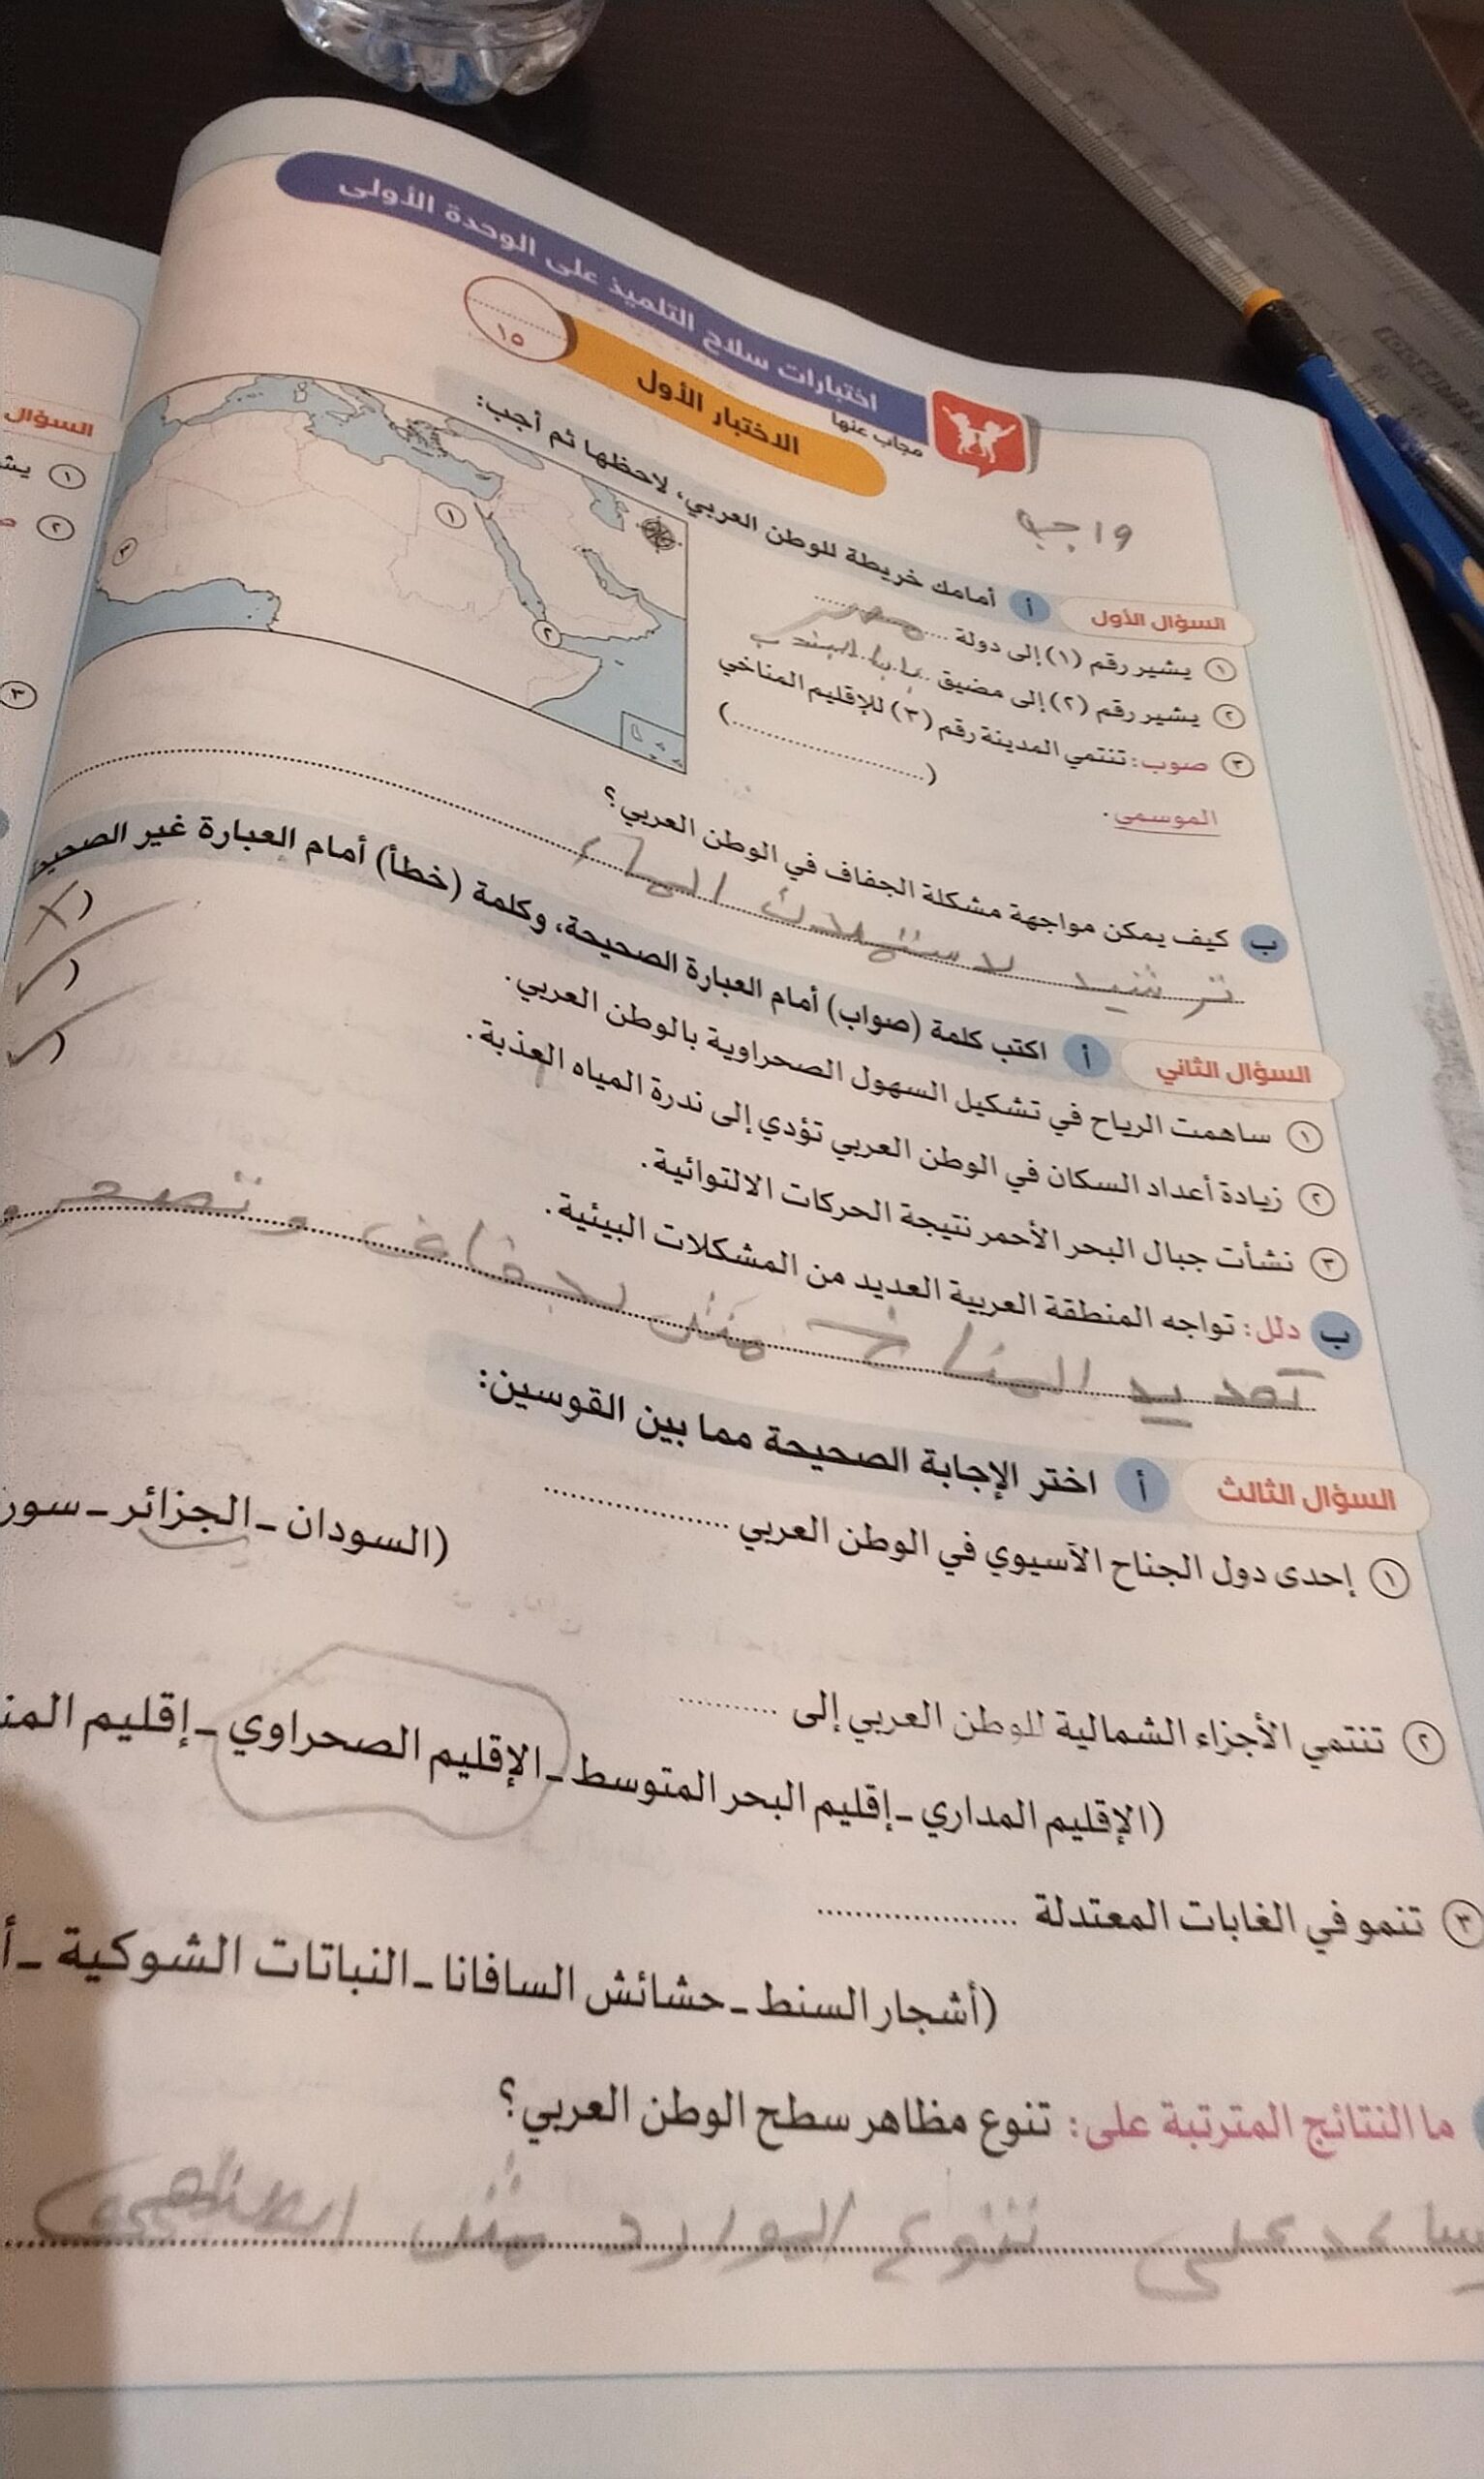 اختبارات سلاح التلميذ على الوحدة الأولى
مجاب عنها
الاختبار الأول
١٥
واجب
السؤال الأول أ أمامك خريطة للوطن العربي، لاحظها ثم أجب:
١ يشير رقم (١) إلى دولة مصر
٢ يشير رقم (٢) إلى مضيق باب المندب
٣ صوب: تنتمي المدينة رقم (٣) للإقليم المناخي
الموسمي. (....................)
١
٢
٣
ب كيف يمكن مواجهة مشكلة الجفاف في الوطن العربي؟
ترشيد لاستهلاك الماء
السؤال الثاني أ اكتب كلمة (صواب) أمام العبارة الصحيحة، وكلمة (خطأ) أمام العبارة غير
١ ساهمت الرياح في تشكيل السهول الصحراوية بالوطن العربي.
٢ زيادة أعداد السكان في الوطن العربي تؤدي إلى ندرة المياه العذبة.
٣ نشأت جبال البحر الأحمر نتيجة الحركات الالتوائية.
ب دلل: تواجه المنطقة العربية العديد من المشكلات البيئية.
المناخ مثل لجفاف وتصحر
السؤال الثالث أ اختر الإجابة الصحيحة مما بين القوسين:
١ إحدى دول الجناح الآسيوي في الوطن العربي ....................
(السودان - الجزائر -
٢ تنتمي الأجزاء الشمالية للوطن العربي إلى ..........
(الإقليم المداري - إقليم البحر المتوسط - الإقليم الصحراوي - إقليم
٣ تنمو في الغابات المعتدلة ....................
(أشجار السنط - حشائش السافانا - النباتات الشوكية -
ما النتائج المترتبة على: تنوع مظاهر سطح الوطن العربي؟
على تنوع الموارد مثل
السؤال
١
٢
٣